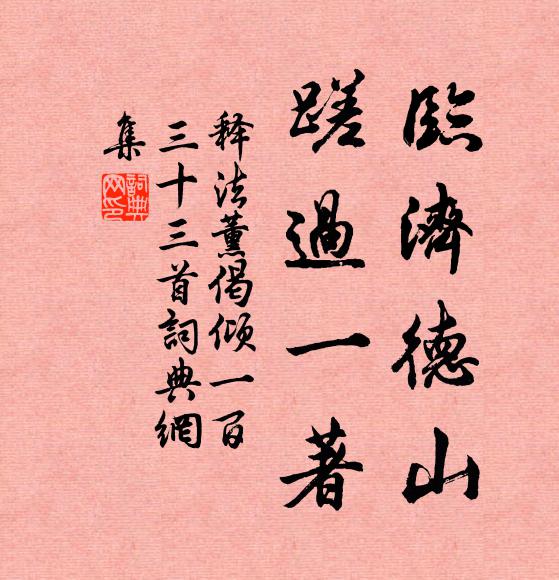 臨濟德山
蹉過一著
释法薰偈倾一百
三十三首詞典網
集
詞典
网印